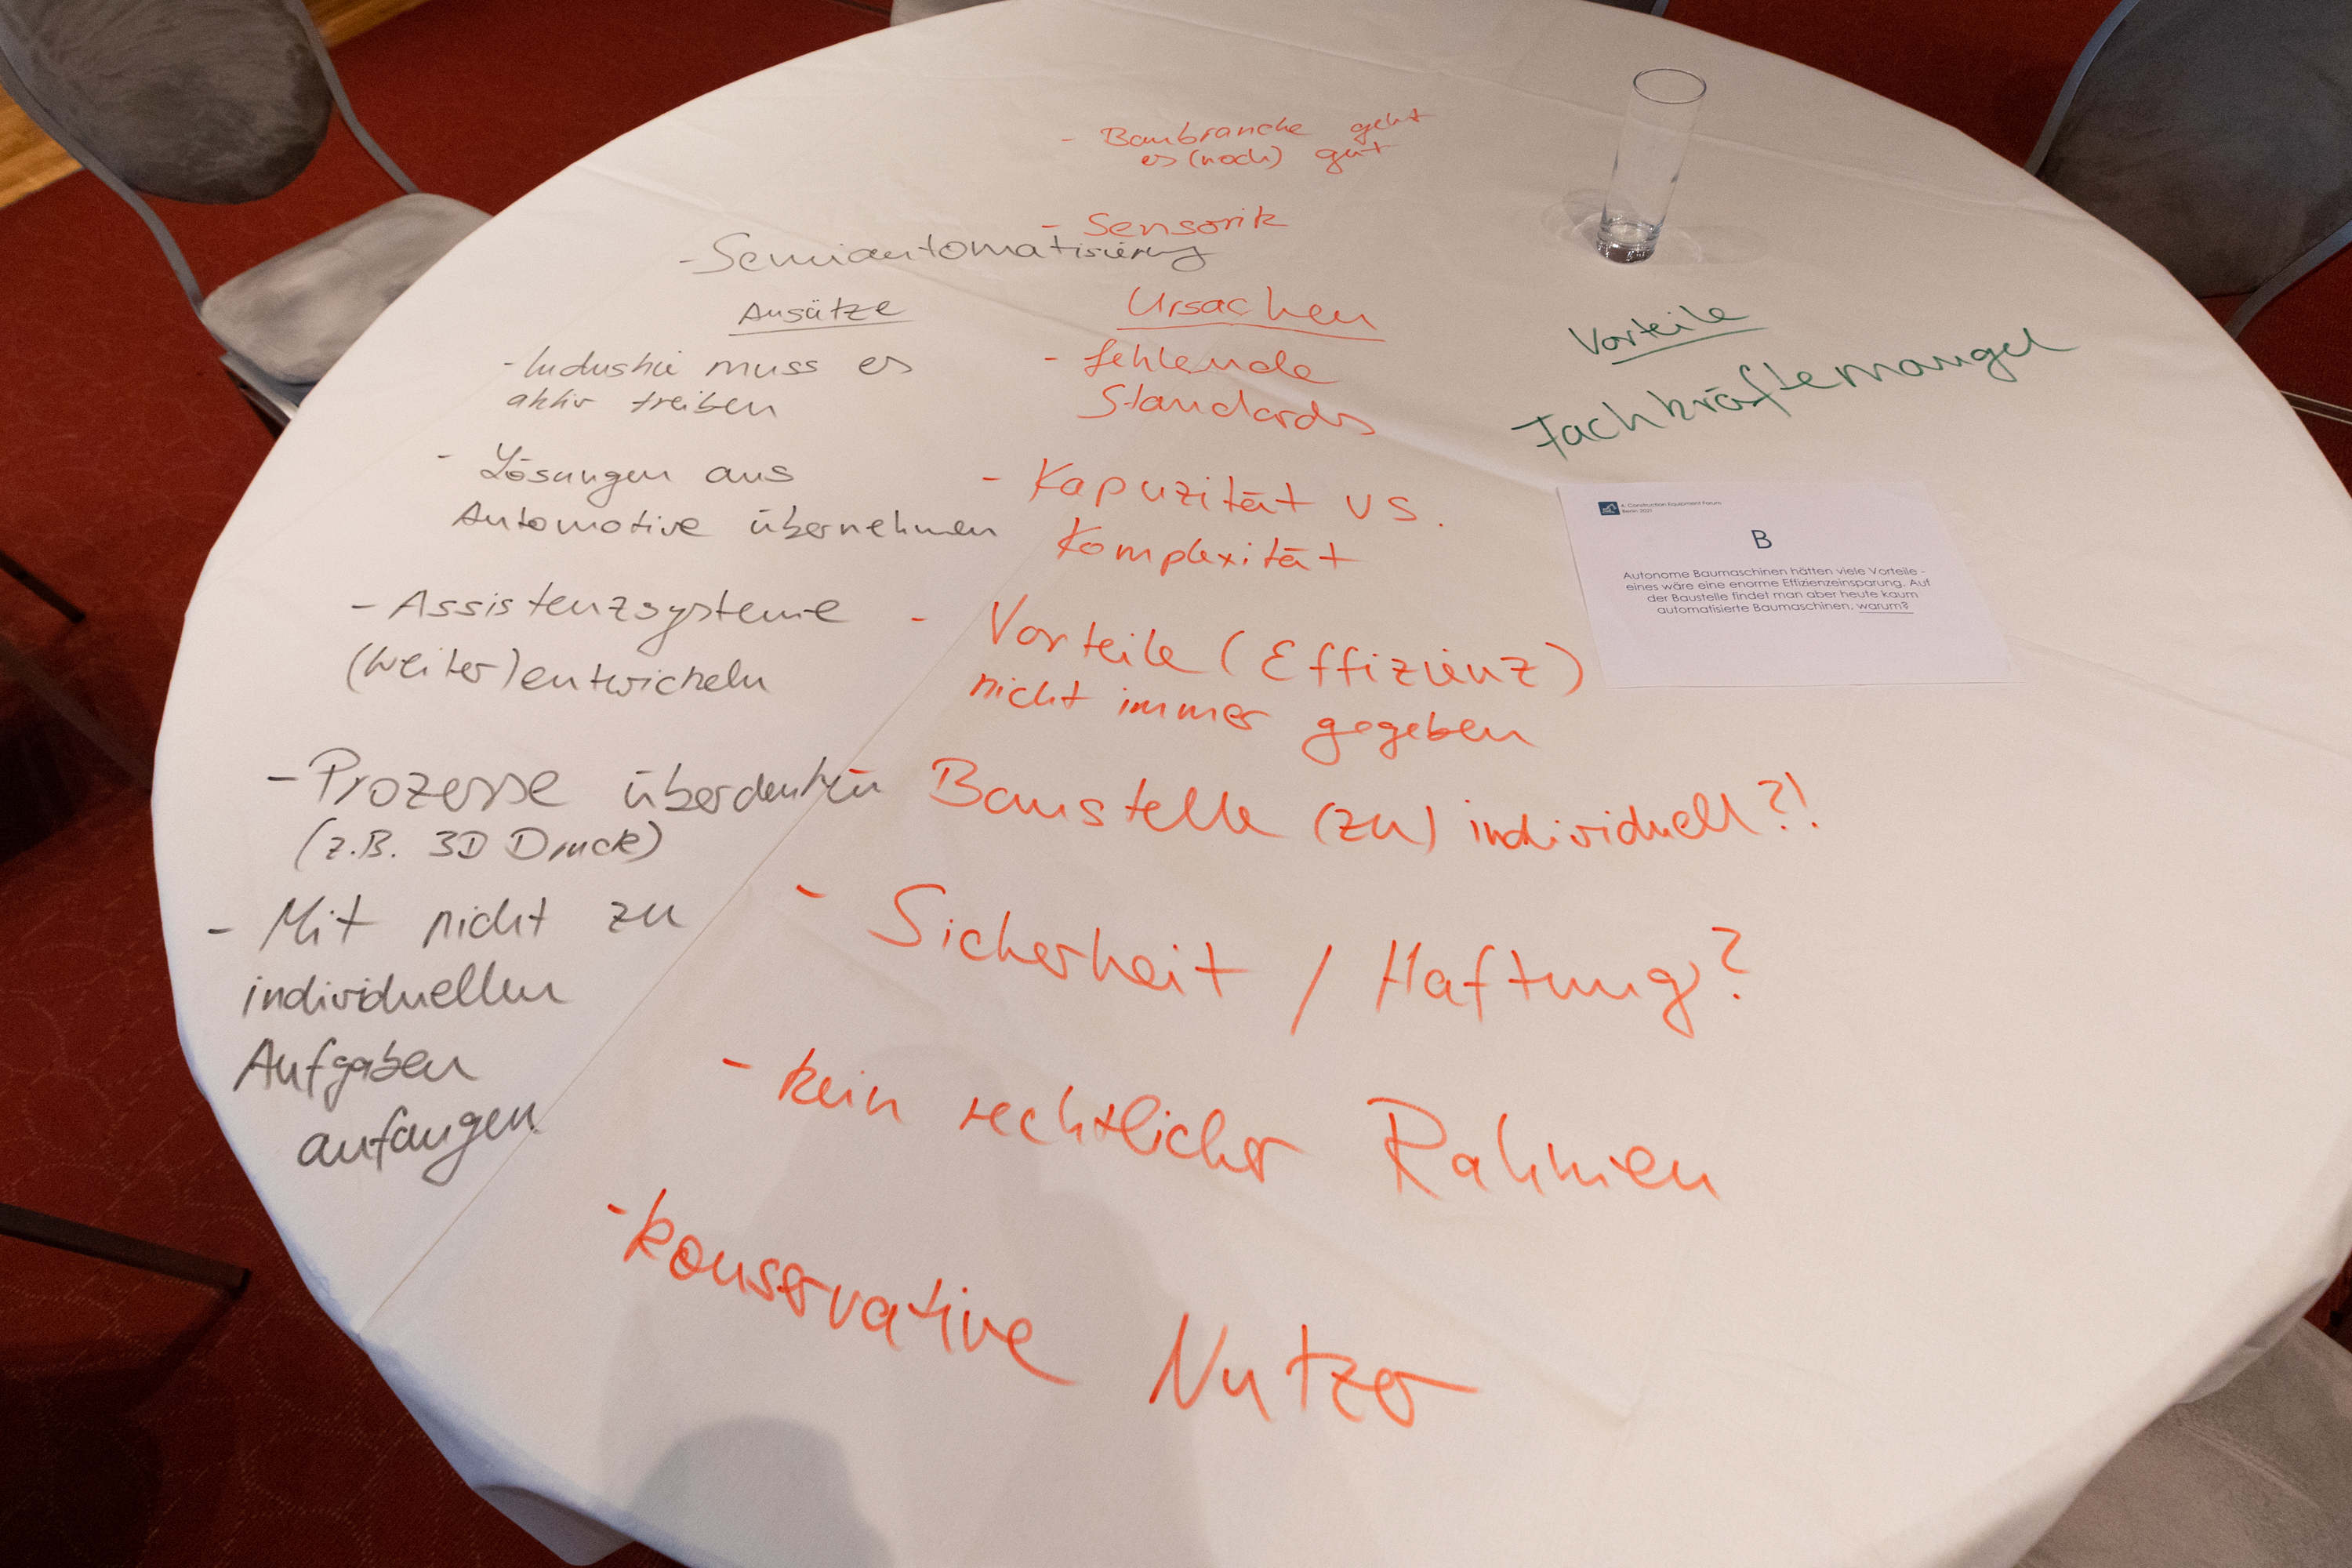 - Semiautomatisierung
Ansätze
- Industrie muss es
aktiv treiben
- Lösungen aus
Automotive übernehmen
- Assistenzsysteme
(weiter)entwickeln
- Prozesse überdenken
(z.B. 3D Druck)
- Mit nicht zu
individuellen
Aufgaben
anfangen
- Baubranche geht
es (noch) gut
- Sensorik
Ursachen
- fehlende
Standards
- Kapazität vs.
Komplexität
- Vorteile (Effizienz)
nicht immer gegeben
- Baustelle (zu) individuell?!
- Sicherheit / Haftung?
- kein rechtlicher Rahmen
- konservative Nutzer
Vorteile
Fachkräftemangel
4. Construction Equipment Forum
Berlin 2021
B
Autonome Baumaschinen hätten viele Vorteile -
eines wäre eine enorme Effizienzeinsparung. Auf
der Baustelle findet man aber heute kaum
automatisierte Baumaschinen, warum?